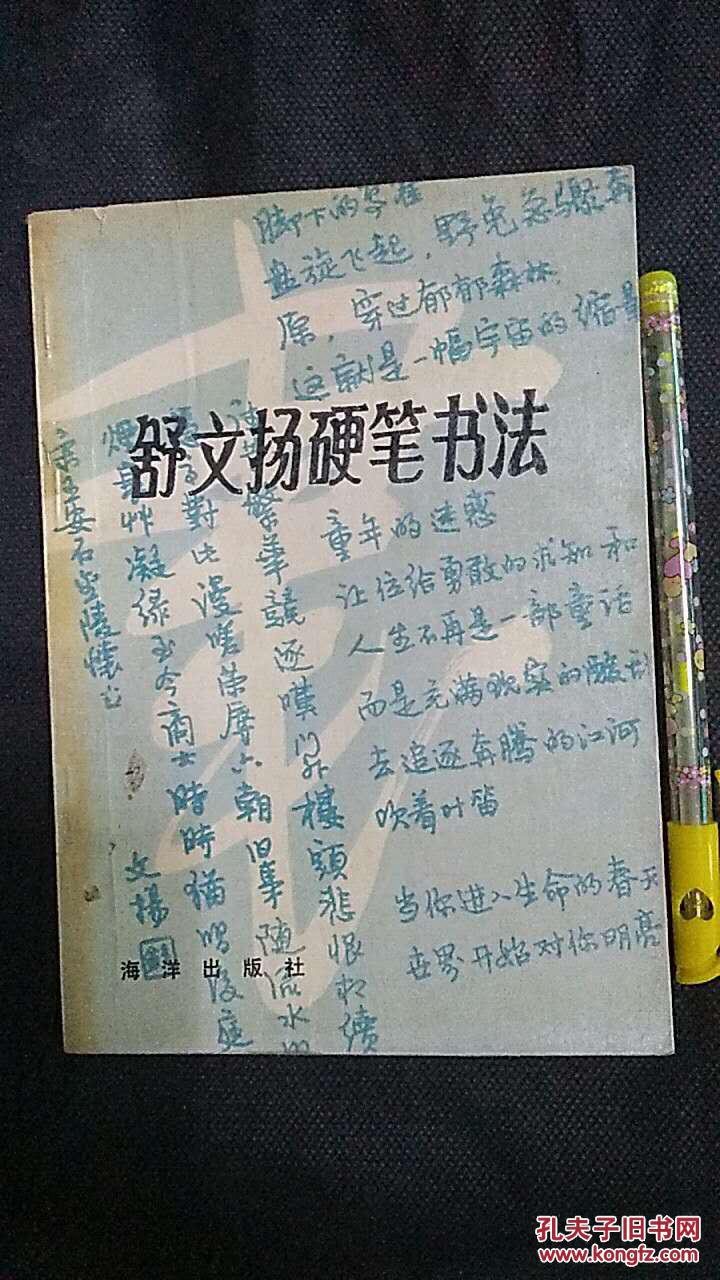 脚下的
盘旋飞起，野兔急骤奔
原，穿过郁郁森林，
这就是一幅宇宙的缩景
舒文扬硬笔书法
童年的迷惑
让位给勇敢的求知和
人生不再是一部童话
而是充满现实的酸
去追逐奔腾的江河
吹着叶笛
当你进入生命的春天
世界开始对你明亮
繁华競逐嘆门外樓頭悲恨相續
對此漫嗟荣辱六朝旧事随流水
草凝绿至今商女時時猶唱後庭
宋王安石金陵懷古
文揚
海洋出版社
孔夫子旧书网
www.kongfz.com